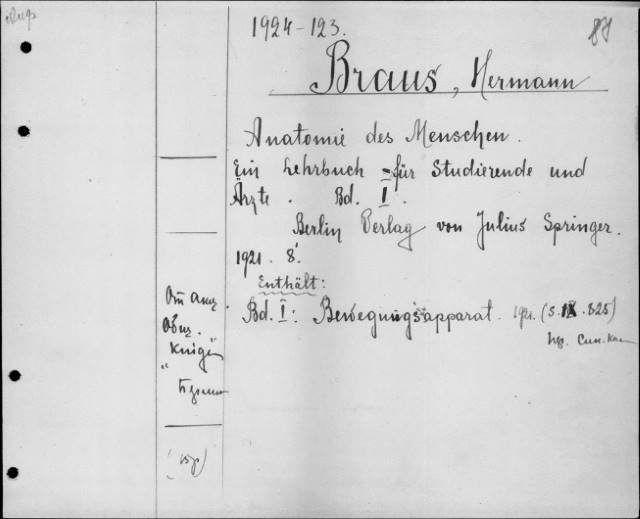 1924-123.
Braus, Hermann
Anatomie des Menschen.
Ein Lehrbuch für Studierende und
Ärzte. Bd. I.
Berlin Verlag von Julius Springer.
1921. 8°.
Enthält:
Bd. I: Bewegungsapparat. 1921. (S. IX. 825)
Общ.
"Knigi"